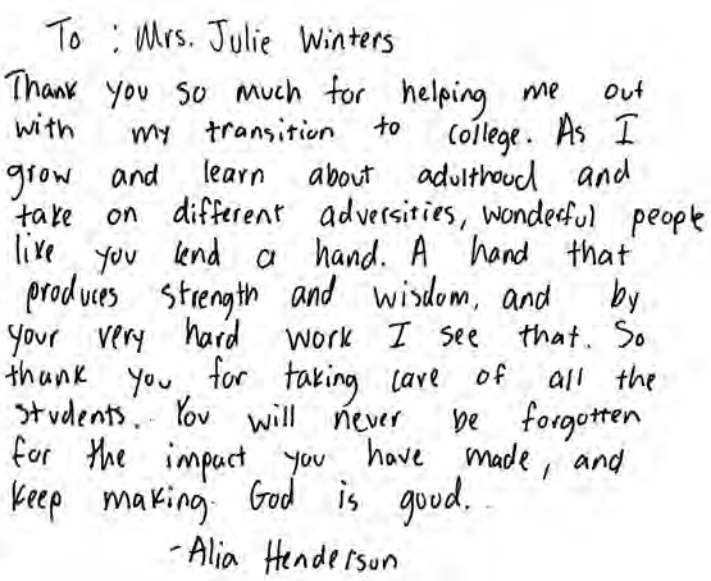 To : Mrs. Julie Winters
Thank you so much for helping me out
with my transition to college. As I
grow and learn about adulthood and
take on different adversities, wonderful people
like you lend a hand. A hand that
produces strength and wisdom, and by
your very hard work I see that. So
thank you for taking care of all the
students. You will never be forgotten
for the impact you have made, and
keep making. God is good.
-Alia Henderson